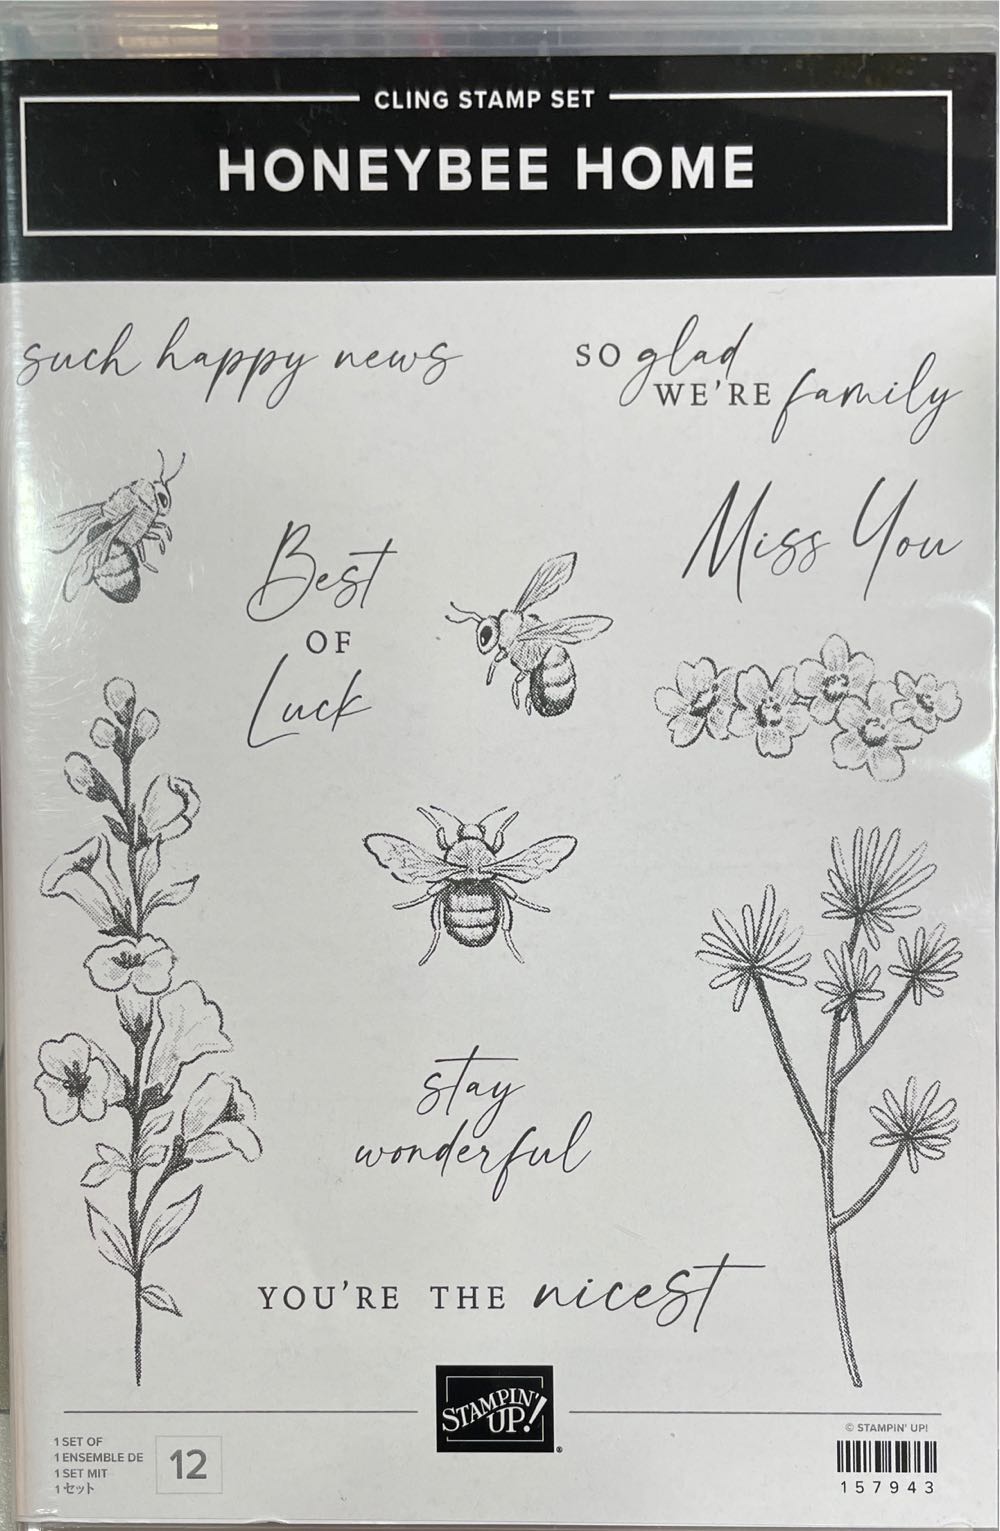 CLING STAMP SET
HONEYBEE HOME
such happy news
SO glad
WE'RE family
Miss You
Best
OF
Luck
stay
wonderful
YOU'RE THE nicest
STAMPIN'
UP!
®
1 SET OF
1 ENSEMBLE DE
1 SET MIT
1 セット
12
© STAMPIN' UP!
157943